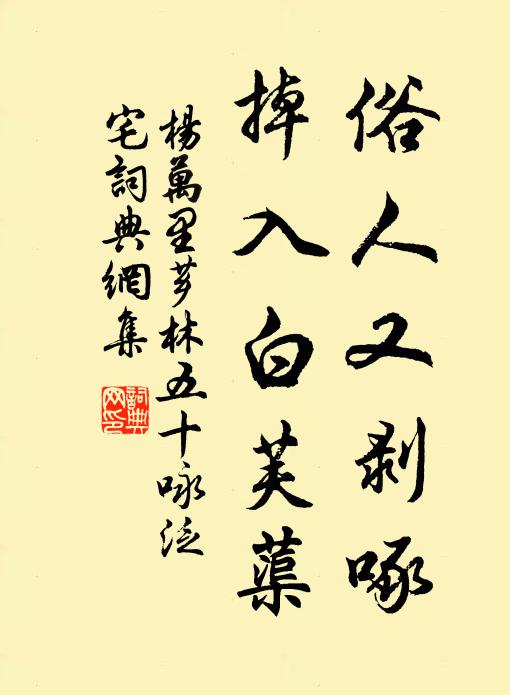 俗人又剥啄
掉入白芙蕖
楊萬里芗林五十咏泛
宅詞典網集
詞典
网印